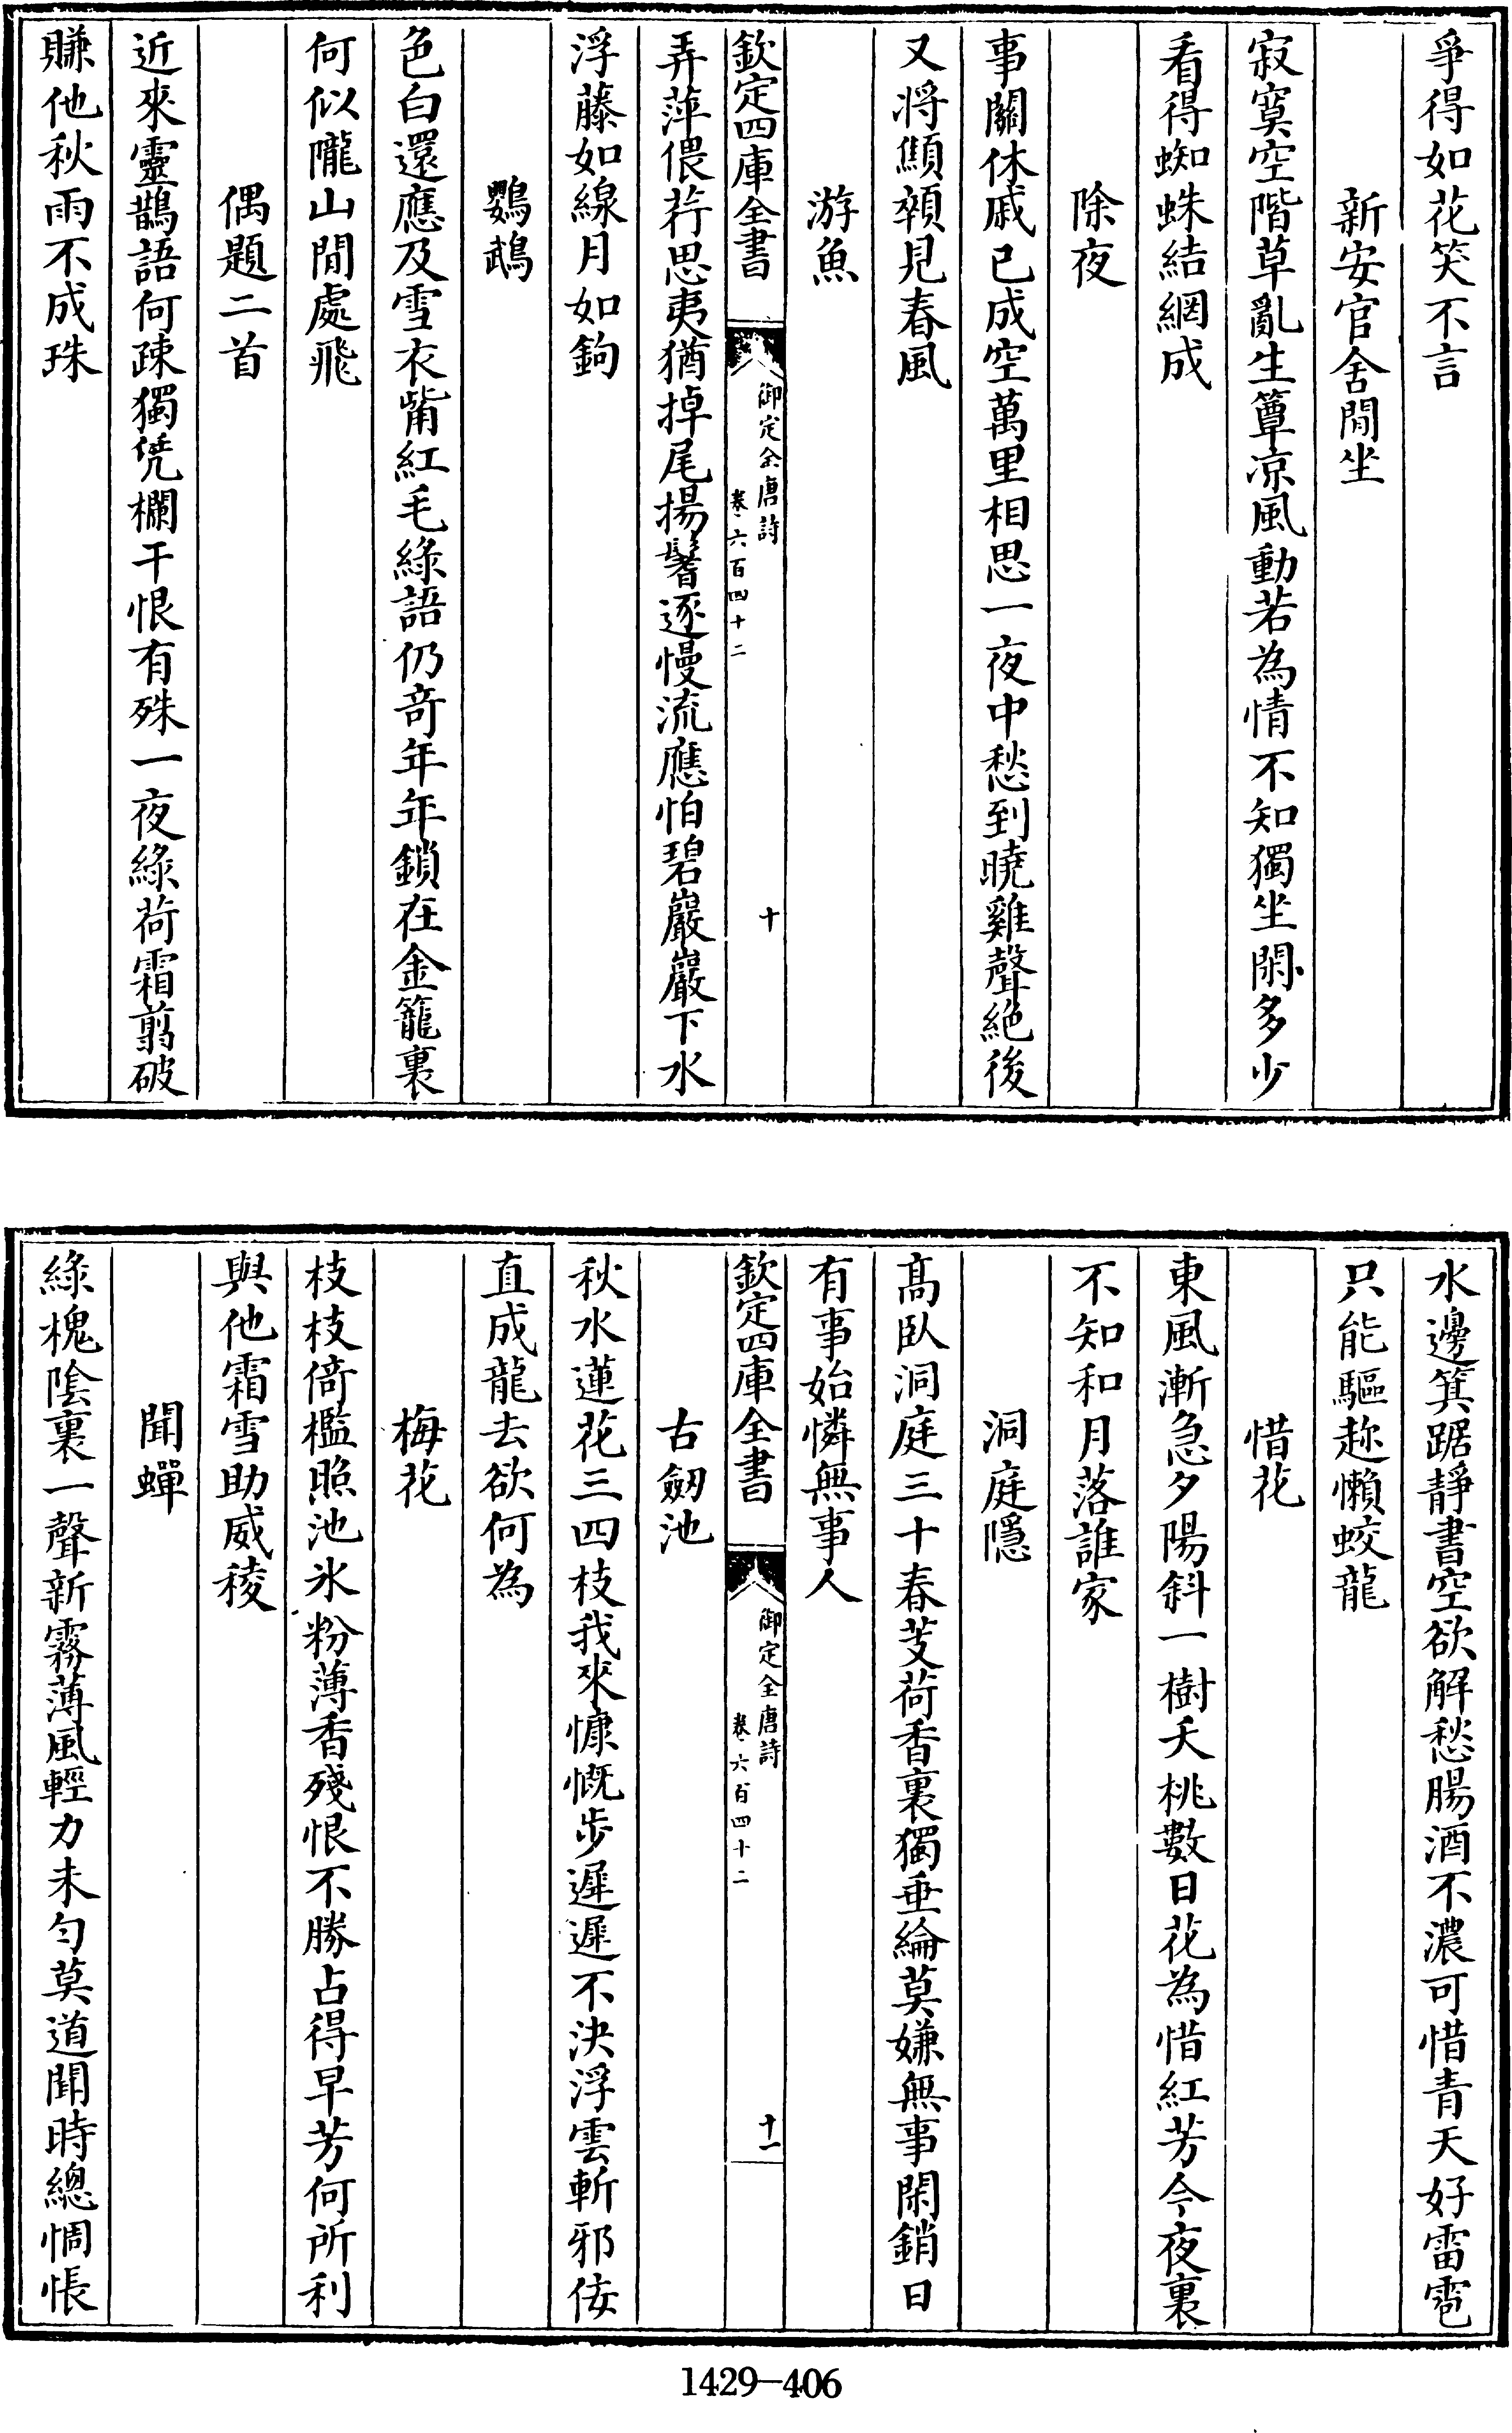 爭得如花笑不言
新安官舍閒坐
寂寞空階草亂生簟凉風動若為情不知獨坐閑多少
看得蜘蛛結網成
除夜
事關休戚已成空萬里相思一夜中愁到曉雞聲絶後
又將顦顇見春風
游魚
欽定四庫全書
御定全唐詩
卷六百四十二
十
弄萍偎荇思夷猶掉尾揚鬐逐慢流應怕碧巖巖下水
浮藤如線月如鉤
鸚鵡
色白還應及雪衣觜紅毛綠語仍竒年年鎖在金籠裏
何似隴山閒處飛
偶題二首
近來靈鵲語何疎獨凭欄干恨有殊一夜綠荷霜翦破
賺他秋雨不成珠
水邊箕踞靜書空欲解愁腸酒不濃可惜青天好雷雹
只能驅趂懶蛟龍
惜花
東風漸急夕陽斜一樹夭桃數日花為惜紅芳今夜裏
不知和月落誰家
洞庭隱
髙臥洞庭三十春芰荷香裏獨垂綸莫嫌無事閑銷日
有事始憐無事人
欽定四庫全書
御定全唐詩
卷六百四十二
十一
古劒池
秋水蓮花三四枝我來慷慨步遲遲不決浮雲斬邪佞
直成龍去欲何為
梅花
枝枝倚檻照池氷粉薄香殘恨不勝占得早芳何所利
與他霜雪助威稜
聞蟬
綠槐陰裏一聲新霧薄風輕力未勻莫道聞時總惆悵
1429-406